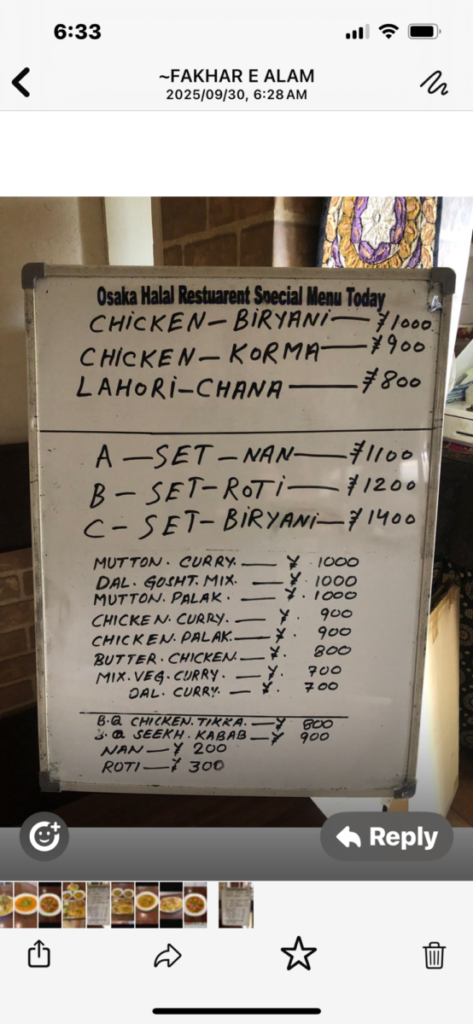 6:33
~FAKHAR E ALAM
2025/09/30, 6:28 AM
Osaka Halal Restuarent Special Menu Today
CHICKEN – BIRYANI — ¥1000
CHICKEN – KORMA — ¥900
LAHORI – CHANA — ¥800
A – SET – NAN — ¥1100
B – SET – ROTI — ¥1200
C – SET – BIRYANI — ¥1400
MUTTON. CURRY. — ¥ 1000
DAL. GOSHT. MIX. — ¥. 1000
MUTTON. PALAK. — ¥. 1000
CHICKEN. CURRY. — ¥. 900
CHICKEN. PALAK. — ¥. 900
BUTTER. CHICKEN. — ¥. 800
MIX. VEG. CURRY. — ¥. 700
DAL. CURRY. — ¥. 700
B.Q CHICKEN. TIKKA. — ¥ 800
Q SEEKH. KABAB — ¥ 900
NAN — ¥ 200
ROTI — ¥ 300
Reply